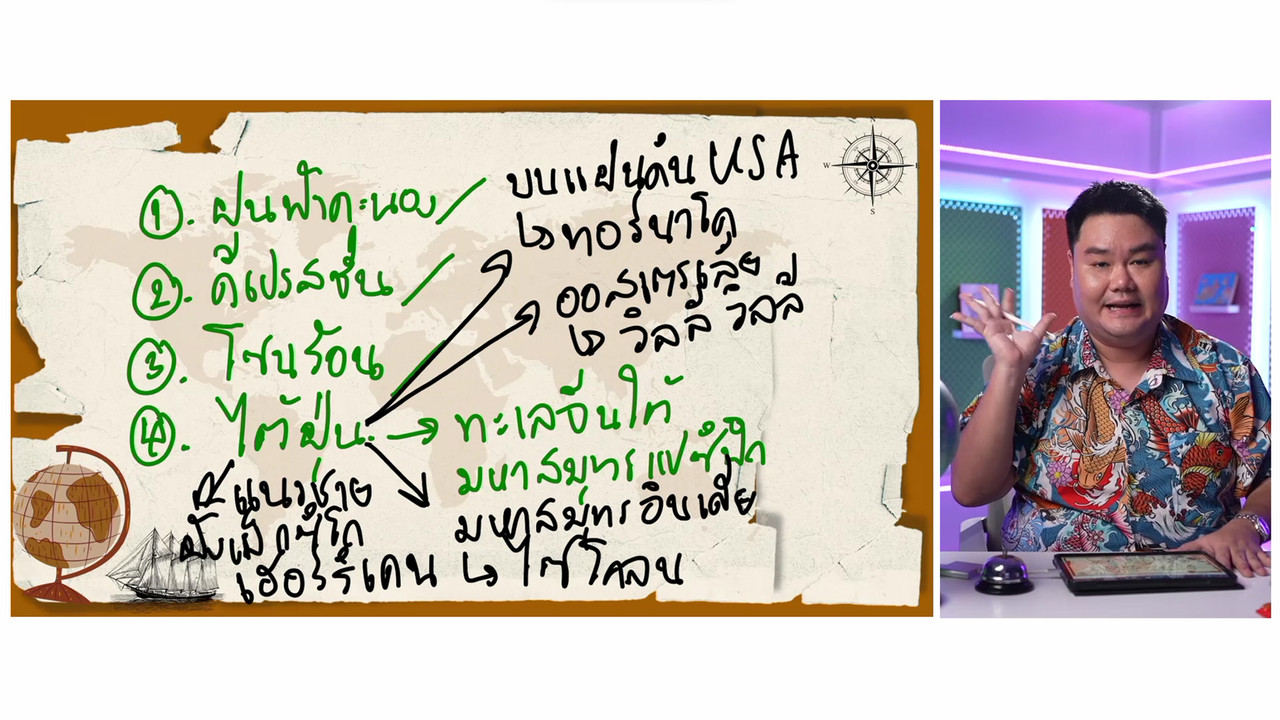 ①. ฝนฟ้าคะนอง
②. ดีเปรสชั่น
③. โซนร้อน
④. ไต้ฝุ่น → ทะเลจีนใต้
มหาสมุทรแปซิฟิก
บนแผ่นดิน USA
↳ ทอร์นาโด
ออสเตรเลีย
↳ วิลลี วิลลี
มหาสมุทรอินเดีย
↳ ไซโคลน
แนวชาย
ฝั่งเม็กซิโก
เฮอร์ริเคน
N
W
E
S